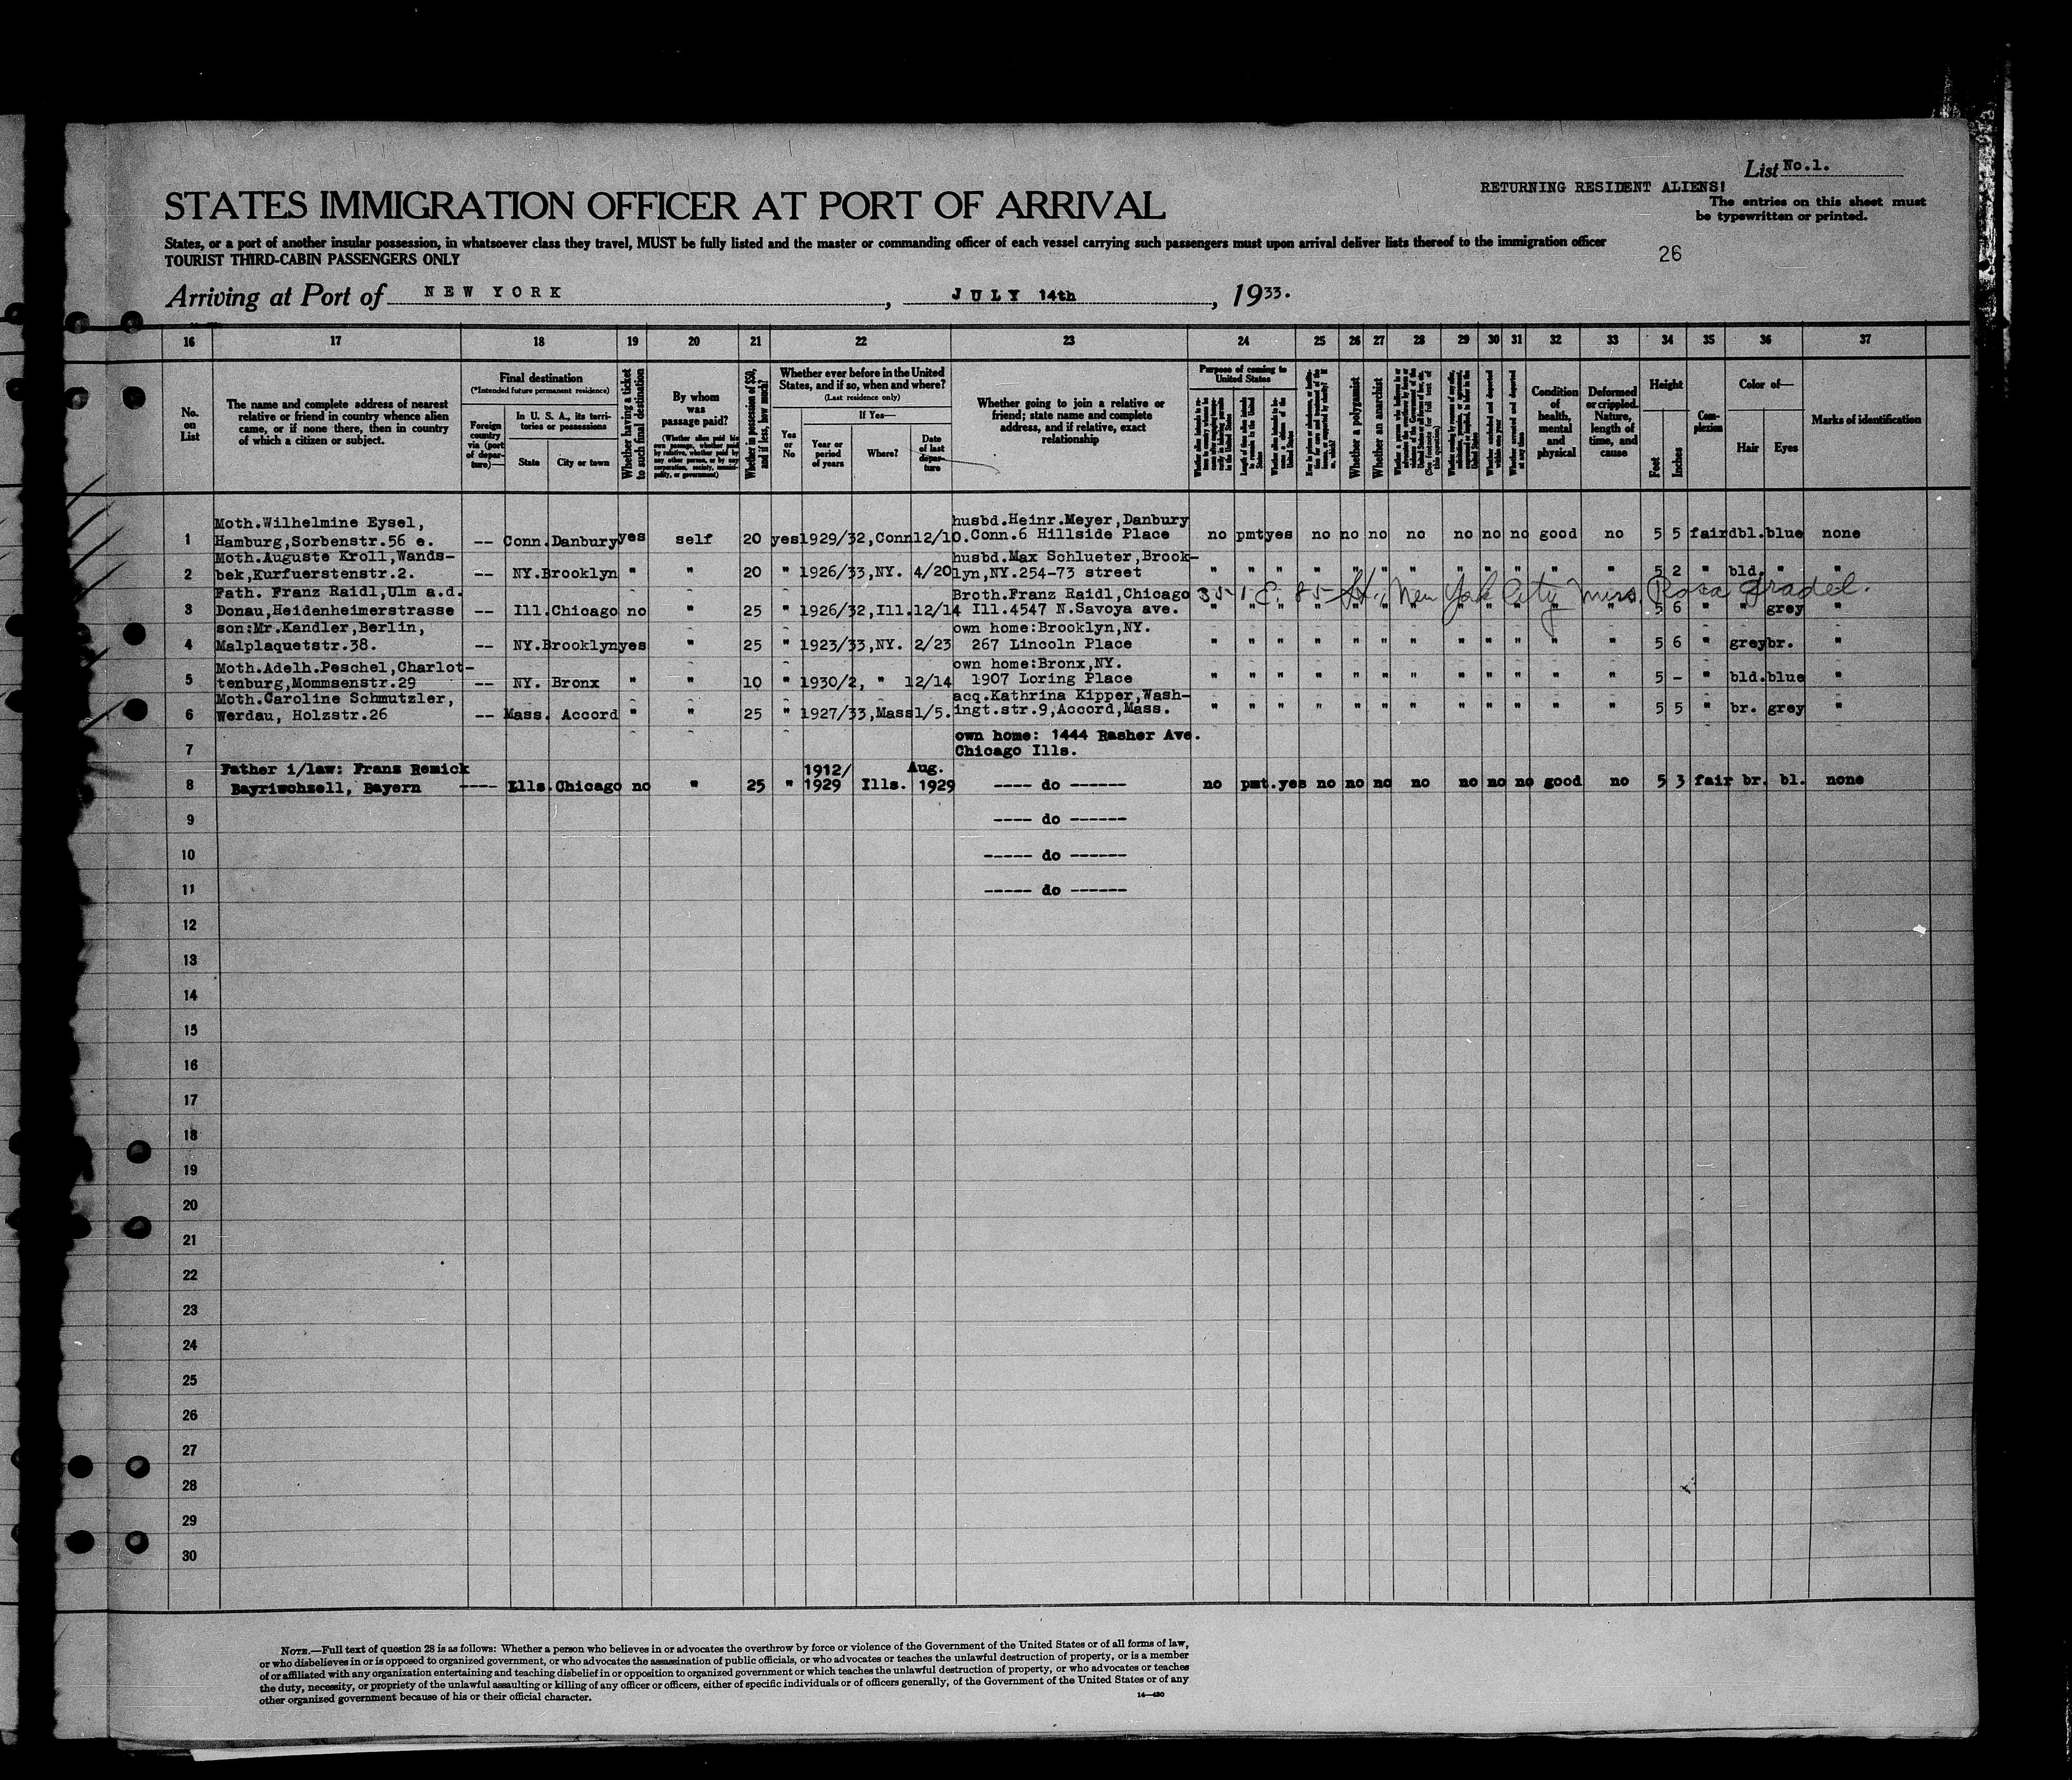 List No.1.
RETURNING RESIDENT ALIENS!
STATES IMMIGRATION OFFICER AT PORT OF ARRIVAL
The entries on this sheet must
be typewritten or printed.
States, or a port of another insular possession, in whatsoever class they travel, MUST be fully listed and the master or commanding officer of each vessel carrying such passengers must upon arrival deliver lists thereof to the immigration officer
TOURIST THIRD-CABIN PASSENGERS ONLY
26
Arriving at Port of NEW YORK, JULY 14th, 1933.
16 17 18 19 20 21 22 23 24 25 26 27 28 29 30 31 32 33 34 35 36 37
No. on List
The name and complete address of nearest
relative or friend in country whence alien
came, or if none there, then in country
of which a citizen or subject.
Final destination
(*Intended future permanent residence)
Foreign country via (port of departure)—
In U. S. A., its territories or possessions
State
City or town
Whether having a ticket to such final destination
By whom was passage paid?
(Whether alien paid his own passage, whether paid by relative, whether paid by any other person, or by any corporation, society, municipality, or government)
Whether in possession of $50, and if less, how much?
Whether ever before in the United States, and if so, when and where?
(Last residence only)
Yes or No
If Yes—
Year or period of years
Where?
Date of last departure
Whether going to join a relative or
friend; state name and complete
address, and if relative, exact
relationship
Purpose of coming to United States
Whether a polygamist
Whether an anarchist
Condition of health, mental and physical
Deformed or crippled. Nature, length of time, and cause
Height
Feet
Inches
Complexion
Color of—
Hair
Eyes
Marks of identification
Moth.Wilhelmine Eysel, husbd.Heinr.Meyer, Danbury
1 Hamburg,Sorbenstr.56 e. -- Conn.Danbury yes self 20 yes 1929/32,Conn 12/10.Conn.6 Hillside Place no pmt yes no no no no no no no good no 5 5 fair dbl. blue none
Moth.Auguste Kroll,Wands- husbd.Max Schlueter,Brook-
2 bek,Kurfuerstenstr.2. -- NY.Brooklyn " " 20 " 1926/33,NY. 4/20 lyn,NY.254-73 street " " " " " " " " " " " " 5 2 " bld. " "
Fath. Franz Raidl,Ulm a.d. Broth.Franz Raidl,Chicago 351 E. 85 St., New York City Miss. Rosa Gradel.
3 Donau,Heidenheimerstrasse -- Ill.Chicago no " 25 " 1926/32,Ill.12/14 Ill.4547 N.Savoya ave. " " " " " " " " " " " " 5 6 " " grey "
son:Mr.Kandler,Berlin, own home:Brooklyn,NY.
4 Malplaquetstr.38. -- NY.Brooklyn yes " 25 " 1923/33,NY. 2/23 267 Lincoln Place " " " " " " " " " " " " 5 6 " grey br. "
Moth.Adelh.Peschel,Charlot- own home:Bronx,NY.
5 tenburg,Mommsenstr.29 -- NY. Bronx " " 10 " 1930/2, " 12/14 1907 Loring Place " " " " " " " " " " " " 5 - " bld. blue "
Moth.Caroline Schmutzler, acq.Kathrina Kipper,Wash-
6 Werdau, Holzstr.26 -- Mass. Accord " " 25 " 1927/33,Mass 1/5. ingt.str.9,Accord,Mass. " " " " " " " " " " " " 5 5 " br. grey "
own home: 1444 Rasher Ave.
7 Chicago Ills.
Father i/law: Franz Remick 1912/ Aug.
8 Bayrischzell, Bayern ---- Ills.Chicago no " 25 " 1929 Ills. 1929 ---- do ------ no pmt. yes no no no no no no no good no 5 3 fair br. bl. none
9 ---- do ------
10 ----- do ------
11 ----- do ------
12
13
14
15
16
17
18
19
20
21
22
23
24
25
26
27
28
29
30
NOTE.—Full text of question 28 is as follows: Whether a person who believes in or advocates the overthrow by force or violence of the Government of the United States or of all forms of law,
or who disbelieves in or is opposed to organized government, or who advocates the assassination of public officials, or who advocates or teaches the unlawful destruction of property, or is a member
of or affiliated with any organization entertaining and teaching disbelief in or opposition to organized government or which teaches the unlawful destruction of property, or who advocates or teaches
the duty, necessity, or propriety of the unlawful assaulting or killing of any officer or officers, either of specific individuals or of officers generally, of the Government of the United States or of any
other organized government because of his or their official character.
14—430